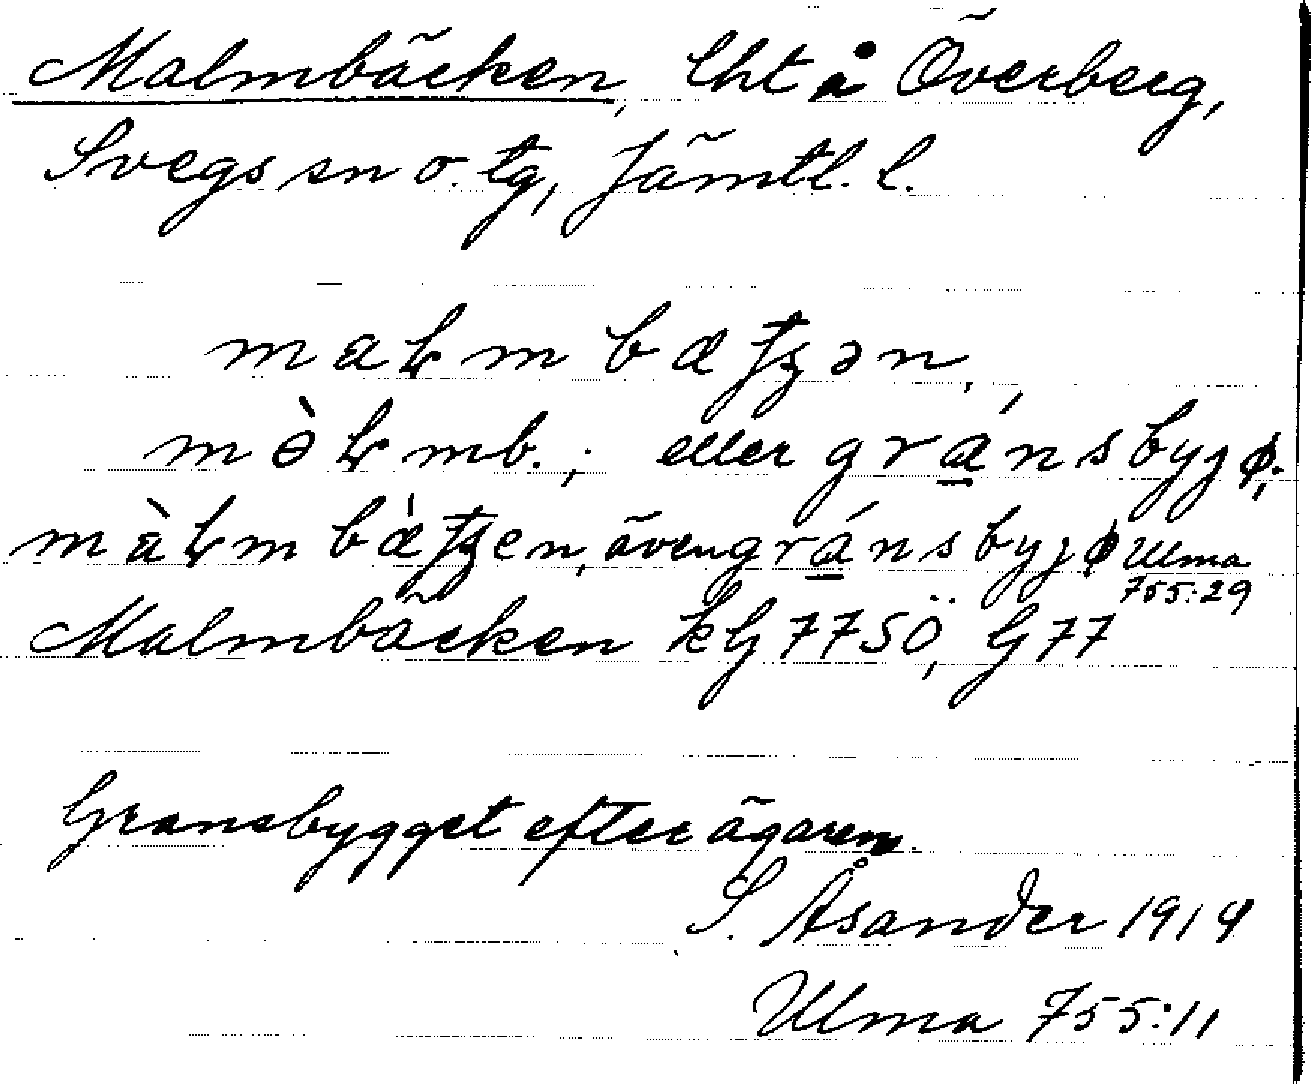 Malmbäcken, lht å Överberg,
Svegs sn o. tg, Jämtl. l.
maɫm bæʈʂən,
mə̀ɫmb.; eller gránsbygø;
màɫm bæ̀ʈʂen, även gránsbygø Ulma
755:29
Malmbäcken kG 77 SÖ, G 77
Gransbygget efter ägaren.
S. Åsander 1914
Ulma 755:11